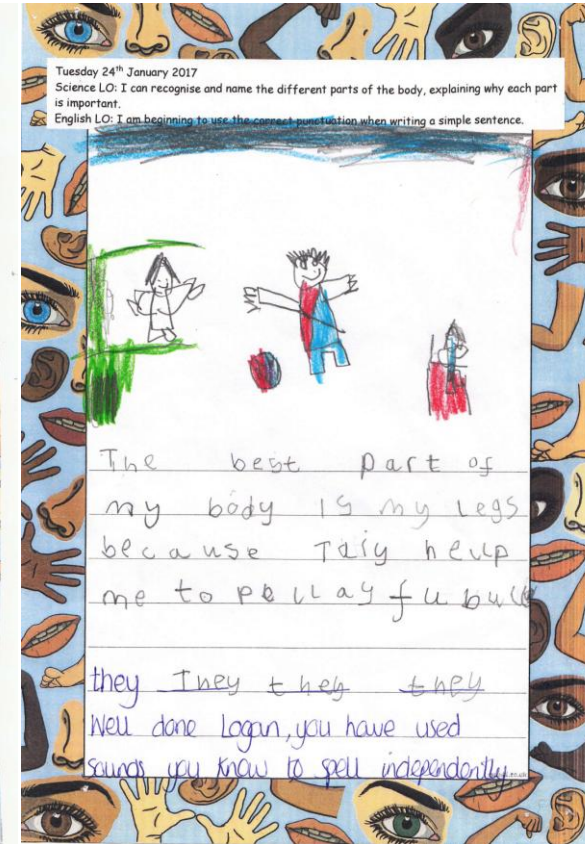 Tuesday 24th January 2017
Science LO: I can recognise and name the different parts of the body, explaining why each part
is important.
English LO: I am beginning to use the correct punctuation when writing a simple sentence.
The best part of
my body is my legs
because Taiy hellp
me to pellay fubull
they They they they
Well done Logan, you have used
sounds you know to spell independently.